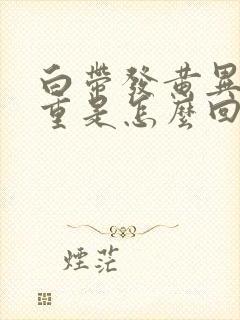 白帶發黄異
重是怎麼回
煙茫